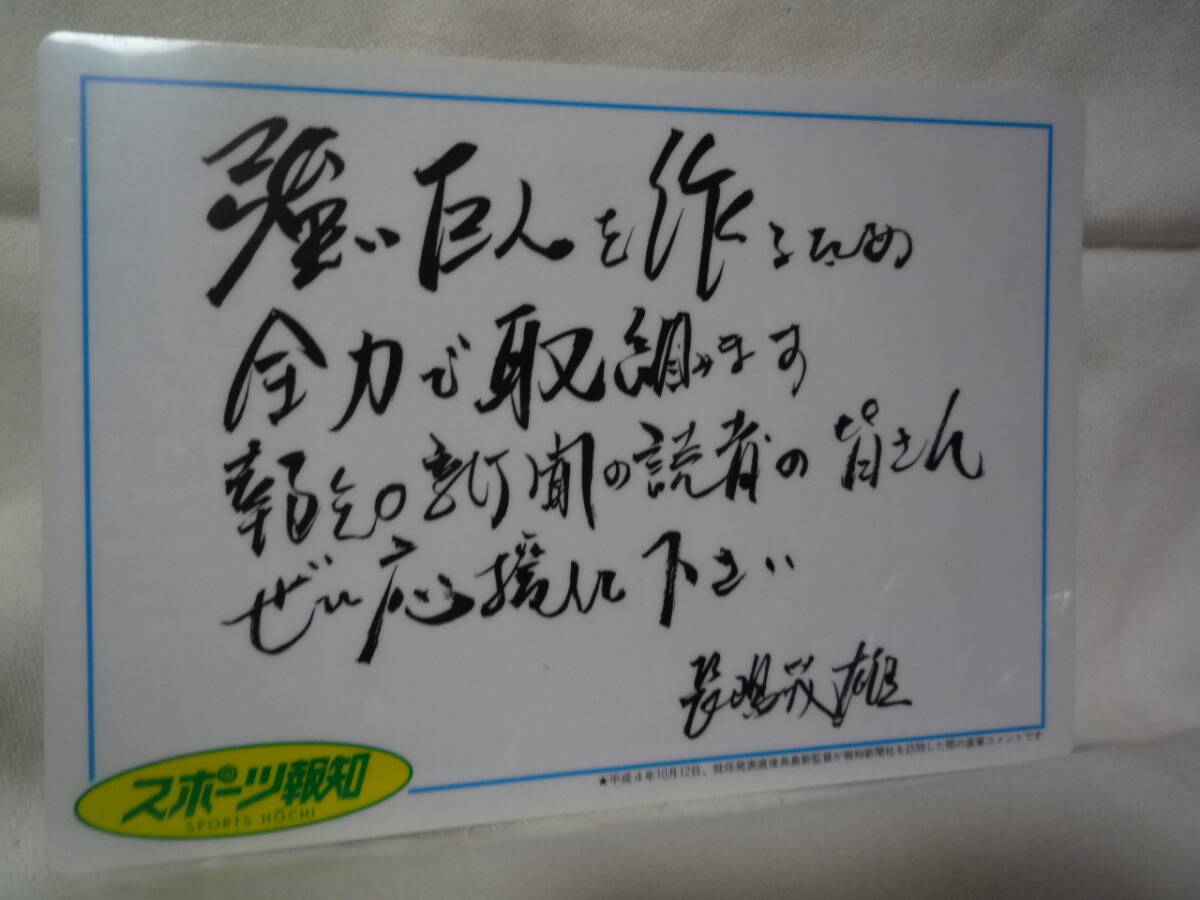 強い巨人を作るため
全力で取組みます
報知新聞の読者の皆さん
ぜひ応援して下さい
長嶋茂雄
★平成4年10月12日、就任発表直後長島新監督が報知新聞社を訪問した際の直筆コメントです
スポーツ報知
SPORTS HOCHI